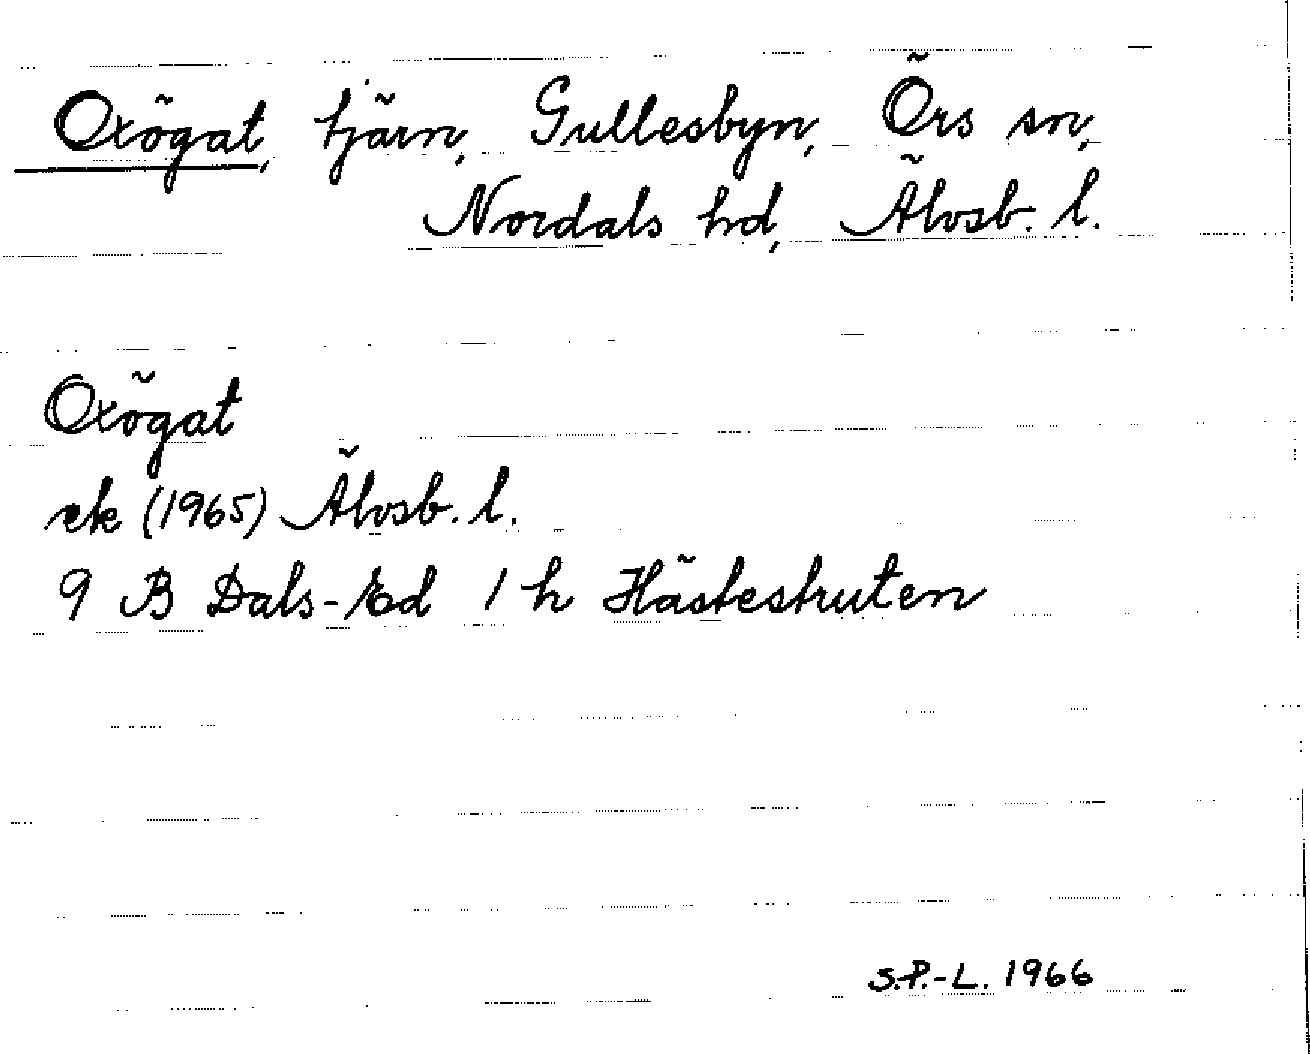 Oxögat, tjärn, Gullesbyn, Örs sn,
Nordals hd, Älvsb. l.
Oxögat
ek (1965) Älvsb. l.
9 B Dals-Ed 1 h Hästestruten
S.P.-L. 1966